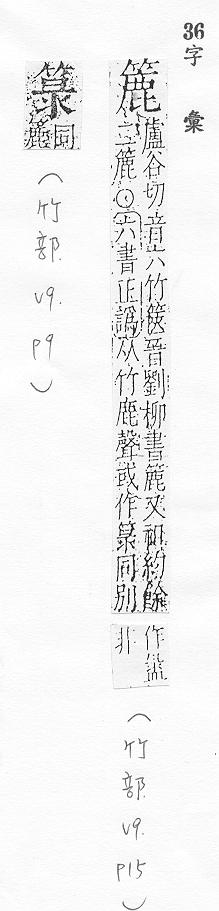 36
字彙
簏
蘆谷切音六竹篋晉劉柳書簏夾袓約餘
二簏〇六書正譌从竹鹿聲或作箓同別
作盝
非
(竹部.v9.p15)
箓
同
簏
(竹部.v9.p9)